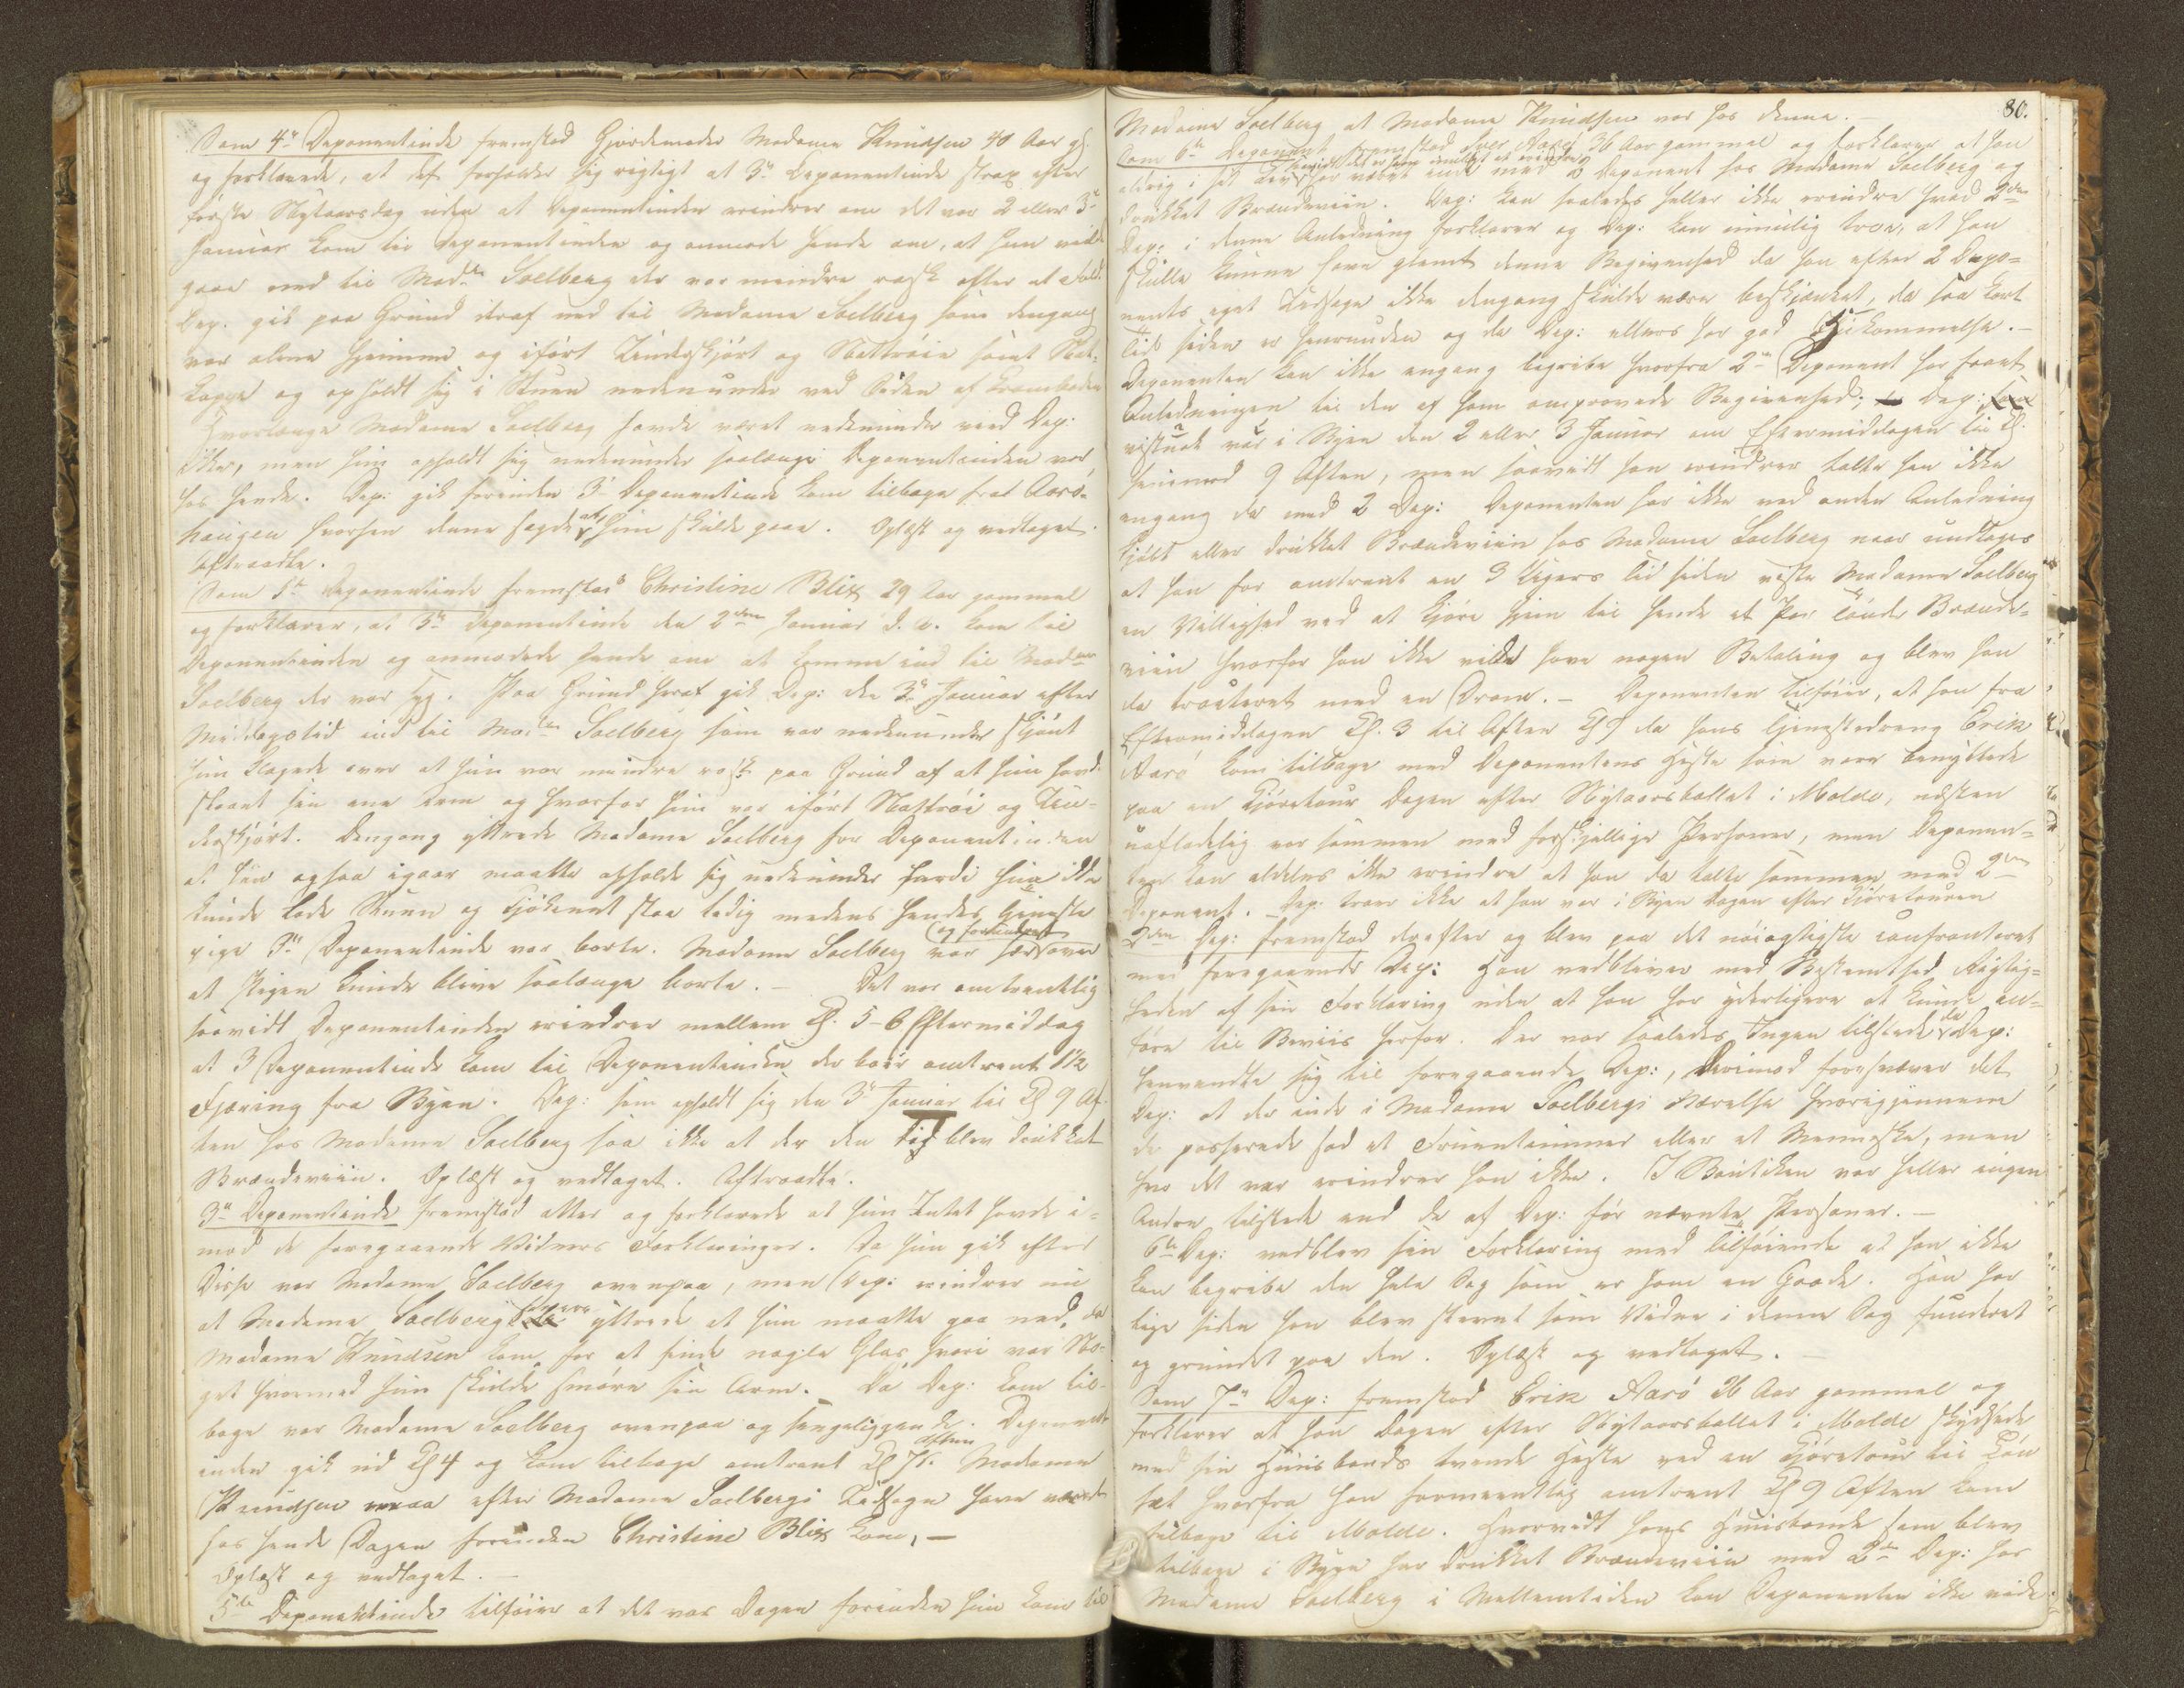 Som 4de Deponentinde fremstod Gjordemoder Madame Knudsen 40 Aar gl.
og forklarede, at det forholder sig rigtigt at 3de Deponentinde strax efter
første Nytaarsdag uden at Deponentinden erindrer om det var 2 eller 3die
Januar kom til Deponentinden og anmode hende om, at hun vilde
gaae ned til Mad. Soelberg der var mindre rask efter et Fald.
Dep. gik paa Grund heraf ned til Madame Soelberg som dengang
var alene hjemme og iført Underskjørt og Nattrøie samt Nat-
kappe og opholdt sig i Stuen nedenunder ved Siden af Kramboden
Hvorlænge Madame Soelberg havde været nedenunder veed Dep:
ikke, men hun opholdt sig nedenunder saalænge Deponentinden var
hos hende. Dep: gik forinden 3die Deponentinde kom tilbage fra Aarø-
haugen hvorhen denne sagde at hun skulde gaae. Oplæst og vedtaget.
Aftraadte.
Som 5te Deponentinde fremstod Christine Blix 29 Aar gammel
og forklarer, at 3die Deponentinde den 2den Januar d. A. kom til
Deponentinden og anmodede hende om at komme ind til Madme
Soelberg der var syg. Paa Grund heraf gik Dep: den 3die Januar efter
Middagstid ind til Mad. Soelberg som var nedenunder skjønt
hun klagede over at hun var mindre rask paa Grund af at hun havde
stødt sin ene Arm og hvorfor hun var iført Nattrøi og Un-
derskjørt. Dengang yttrede Madame Soelberg for Deponentinden
at hun ogsaa igaar maatte opholde sig nedenunder fordi hun ikke
kunde lade Stuen og Kjøkenet staa ledig medens hendes Tjeneste
pige 3die Deponentinde var borte. Madame Soelberg var og forundret herover
at Pigen kunde blive saalænge borte. — Det var omtrentlig
saavidt Deponentinden erindrer mellem Kl. 5-6 Eftermiddag
at 3 Deponentinde kom til Deponentinden der boer omtrent 1 1/2
Fjæring fra Byen. Dep: som opholdt sig den 3die Januar til Kl 9 Af-
ten hos Madame Soelberg saa ikke at der den Tid blev drukket
Brændeviin. Oplæst og vedtaget. Aftraadte.
3die Deponentinde fremstod atter og forklarede at hun Intet havde i-
mod de foregaaende Vidners Forklaringer. Da hun gik efter
Disse var Madame Soelberg ovenpaa, men Dep: erindrer nu
at Madame Soelberg yttrede at hun maatte gaa ned, da
Madame Knudsen kom for at finde nogle Glas hvori var No-
get hvormed hun skulde smøre sin Arm. — Da Dep: kom til-
bage var Madame Soelberg ovenpaa og sengeliggende. Deponent-
inden gik ud Kl 4 og kom tilbage omtrent Kl 7 Aften. Madame
Knudsen maa efter Madame Soelbergs Udsagn have været
hos hende Dagen forinden Christine Blix kom, —
Oplæst og vedtaget. —
5te Deponentinde tilføier at det var Dagen forinden hun kom til
80.
Madame Soelberg at Madame Knudsen var hos denne. —
Som 6te Deponent fremstod Iver Aarø 36 Aar gammel og forklarer at han
aldrig i sit Liv saavidt det er ham muligt at erindre har været inde med 2 Deponent hos Madame Soelberg og
drukket Brændeviin. Dep: kan saaledes heller ikke erindre hvad 2den
Dep: i denne Anledning forklarer og Dep: kan umulig troe, at han
skulde kunne have glemt denne Begivenhed da han efter 2 Depo-
nents eget Udsagn ikke dengang skulde være beskjænket, da saa kort
Tid siden er henrunden og da Dep: ellers har god Hukommelse. —
Deponenten kan ikke engang begribe hvorfra 2den Deponent har faaet
Anledningen til den af ham omprovede Begivenhed; Dep:
vistnok var i Byen den 2 eller 3 Januar om Eftermiddagen til Kl.
henimod 9 Aften, men saavidt han erindrer talte han ikke
engang da med 2 Dep: Deponenten har ikke ved anden Anledning
kjøbt eller drukket Brændeviin hos Madame Soelberg naar undtages
at han for omtrent en 3 Ugers Tid siden viste Madame Soelberg
en Villighed ved at kjøre hjem til hende et Par Tønder Brænde-
viin hvorfor han ikke vilde have nogen Betaling og blev han
da tracteret med en Dram. — Deponenten tilføier, at han fra
Eftermiddagen Kl. 3 til Aften Kl 9 da hans Tjenestedreng Erik
Aarø kom tilbage med Deponentens Heste som vare benyttede
paa en Kjøretour Dagen efter Nytaarsballet i Molde, næsten
uafladelig var sammen med forskjellige Personer, men Deponen-
ten kan aldeles ikke erindre at han da talte sammen med 2den
Deponent. — Dep: troer ikke at han var i Byen Dagen efter Kjøretouren
2den Dep: fremstod derefter og blev paa det nøiagtigste confronteret
med foregaaende Dep: Han vedbliver med Bestemthed Rigtig-
heden af sin Forklaring uden at han har yderligere at kunne an-
føre til Beviis herfor. Der var saaledes Ingen tilstede da Dep:
henvendte sig til foregaaende Dep:, derimod foresvæver det
Dep: at der inde i Madame Soelbergs Værelse hvorigjennem
de passerede sad et Fruentimmer eller et Menneske, men
hvo det var erindrer han ikke. I Boutiken var heller ingen
Andre tilstede end de af Dep: før nævnte Personer. —
6te Dep: vedblev sin Forklaring med Tilføiende at han ikke
kan begribe den hele Sag som er ham en Gaade. Han har
lige siden han blev stævnt som Vidne i denne Sag funderet
og grundet paa den. Oplæst og vedtaget. —
Som 7de Dep: fremstod Erik Aarø 26 Aar gammel og
forklarer at han Dagen efter Nytaarsballet i Molde skydsede
med sin Huusbonds tvende Heste ved en Kjøretour til Røn
sæt hvorfra han formeentlig omtrent Kl 9 Aften kom
tilbage til Molde. Hvorvidt hans Huusbonde som blev
tilbage i Byen har drukket Brændeviin med 2den Dep: hos
Madame Soelberg i Mellemtiden kan Deponenten ikke vide